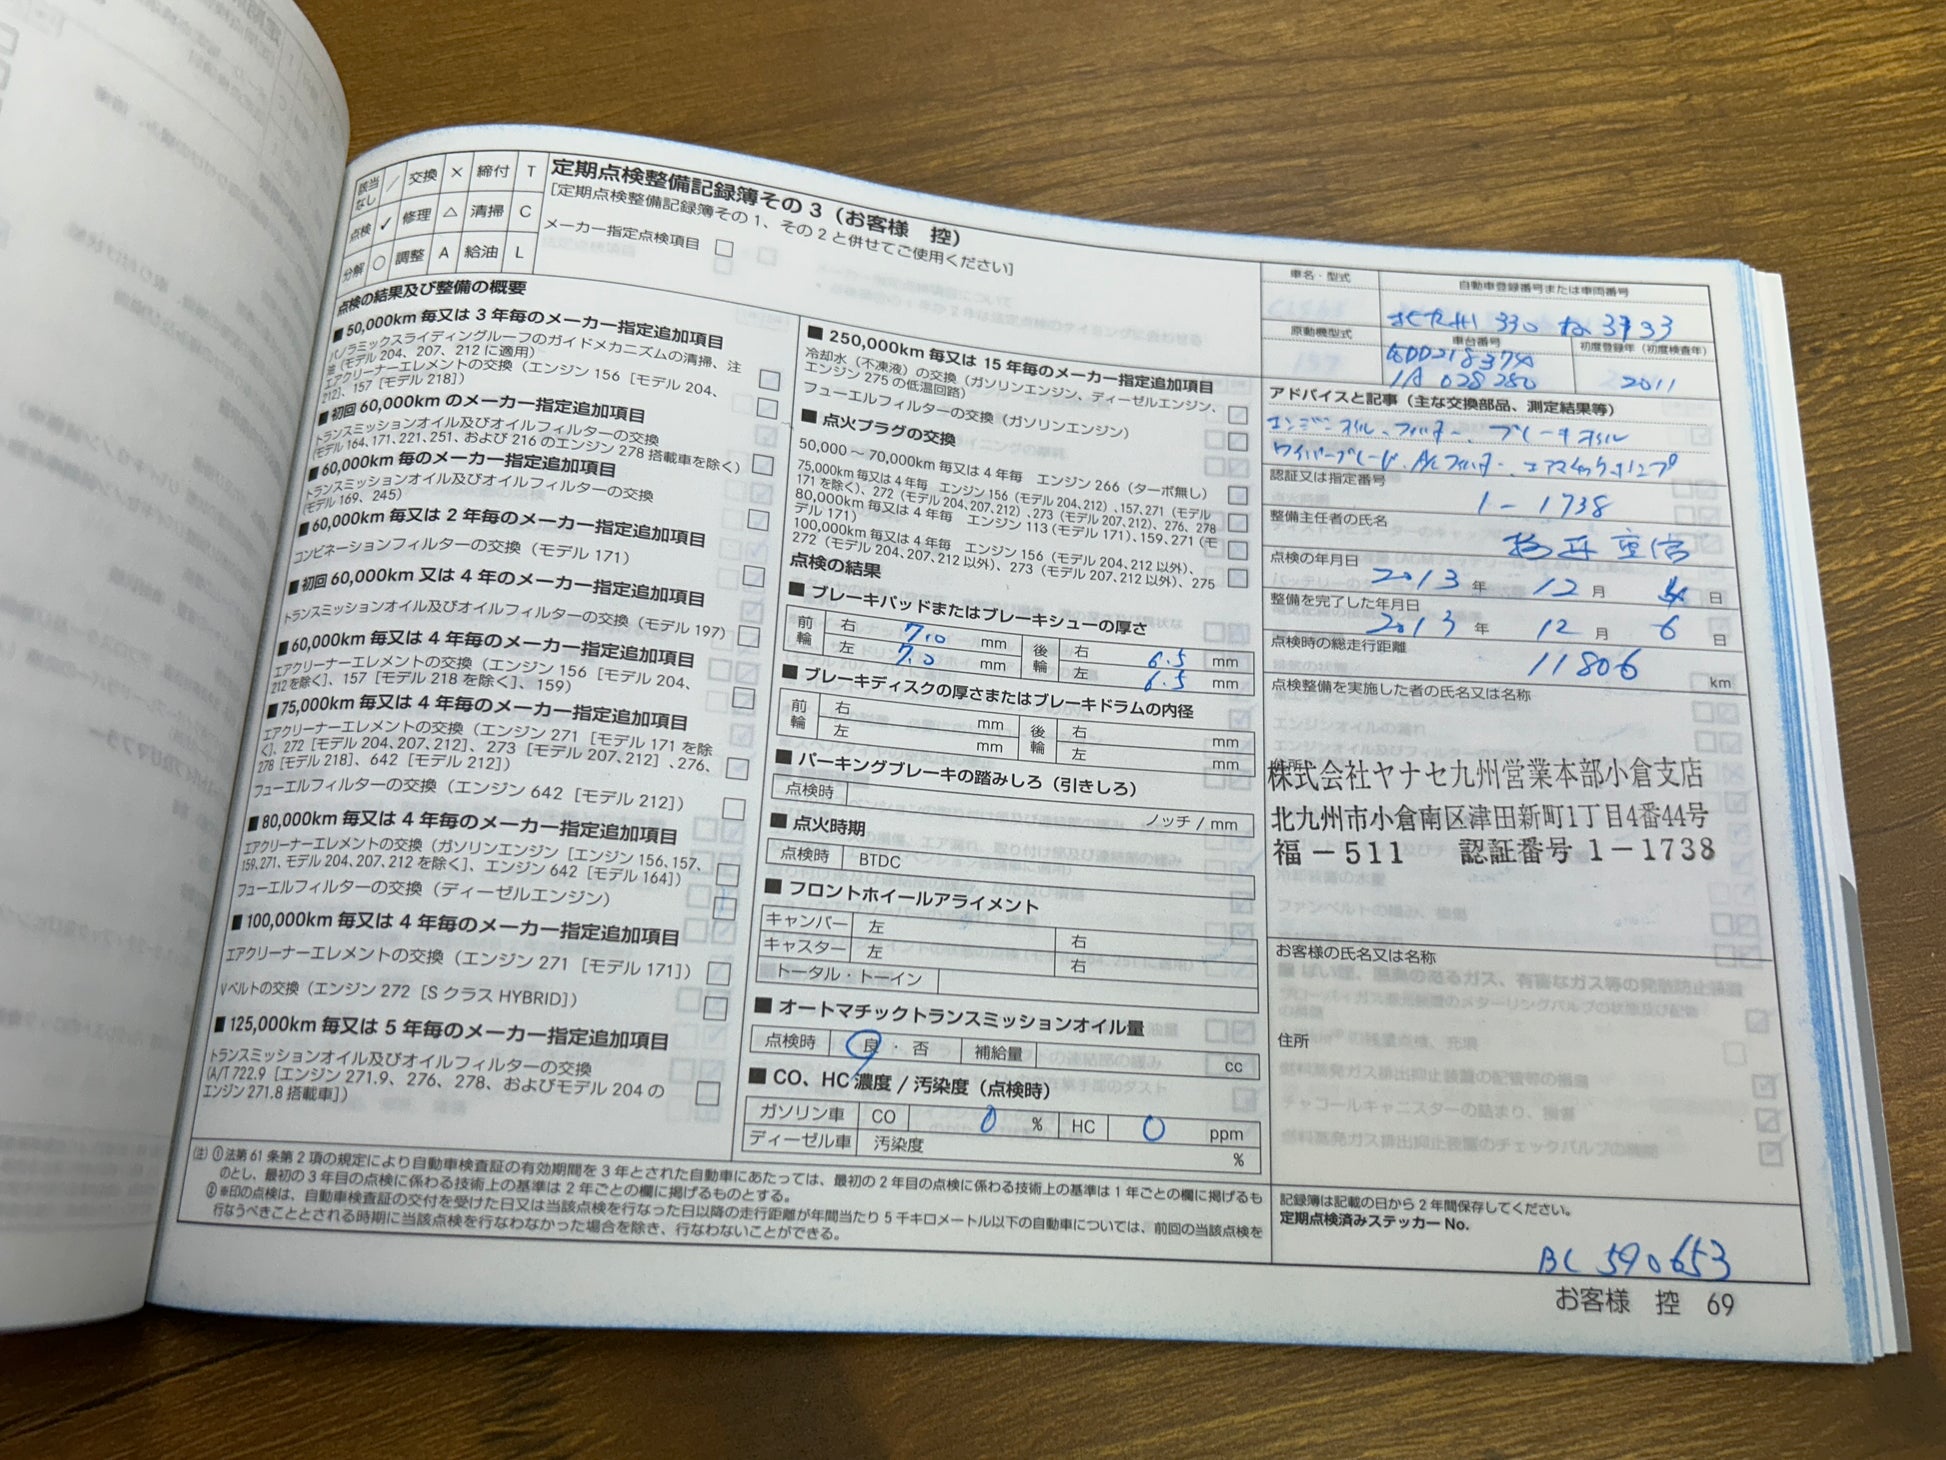 該当なし ／ 交換 × 締付 T
点検 ✓ 修理 △ 清掃 C
分解 ○ 調整 A 給油 L
定期点検整備記録簿その3（お客様 控）
[定期点検整備記録簿その1、その2と併せてご使用ください]
メーカー指定点検項目 □
点検の結果及び整備の概要
■50,000km 毎又は3年毎のメーカー指定追加項目
パノラミックスライディングルーフのガイドメカニズムの清掃、注
油（モデル 204、207、212 に適用）
エアクリーナーエレメントの交換（エンジン 156［モデル 204、
212］、157［モデル 218］）
■初回 60,000km のメーカー指定追加項目
トランスミッションオイル及びオイルフィルターの交換
（モデル 164,171,221,251、および 216 のエンジン 278 搭載車を除く）
■60,000km 毎のメーカー指定追加項目
トランスミッションオイル及びオイルフィルターの交換
（モデル 169、245）
■60,000km 毎又は2年毎のメーカー指定追加項目
コンビネーションフィルターの交換（モデル 171）
■初回 60,000km 又は4年のメーカー指定追加項目
トランスミッションオイル及びオイルフィルターの交換（モデル 197）
■60,000km 毎又は4年毎のメーカー指定追加項目
エアクリーナーエレメントの交換（エンジン 156［モデル 204、
212を除く］、157［モデル 218を除く］、159）
■75,000km 毎又は4年毎のメーカー指定追加項目
エアクリーナーエレメントの交換（エンジン 271［モデル 171 を除
く］、272［モデル 204、207、212］、273［モデル 207、212］、276、
278［モデル 218］、642［モデル 212］）
フューエルフィルターの交換（エンジン 642［モデル 212］）
■80,000km 毎又は4年毎のメーカー指定追加項目
エアクリーナーエレメントの交換（ガソリンエンジン［エンジン 156、157、
159、271、モデル 204、207、212 を除く］、エンジン 642［モデル 164］）
フューエルフィルターの交換（ディーゼルエンジン）
■100,000km 毎又は4年毎のメーカー指定追加項目
エアクリーナーエレメントの交換（エンジン 271［モデル 171］）
Vベルトの交換（エンジン 272［Sクラス HYBRID］）
■125,000km 毎又は5年毎のメーカー指定追加項目
トランスミッションオイル及びオイルフィルターの交換
(A/T 722.9［エンジン 271.9、276、278、およびモデル 204 の
エンジン 271.8 搭載車］）
■250,000km 毎又は15年毎のメーカー指定追加項目
冷却水（不凍液）の交換（ガソリンエンジン、ディーゼルエンジン、
エンジン 275 の低温回路）
フューエルフィルターの交換（ガソリンエンジン）
■点火プラグの交換
50,000～70,000km 毎又は4年毎 エンジン 266（ターボ無し）
75,000km 毎又は4年毎 エンジン 156（モデル 204、212）、157、271（モデル
171 を除く）、272（モデル 204、207、212）、273（モデル 207、212）、276、278
80,000km 毎又は4年毎 エンジン 113（モデル 171）、159、271（モ
デル 171）
100,000km 毎又は4年毎 エンジン 156（モデル 204、212 以外）、
272（モデル 204、207、212以外）、273（モデル 207、212以外）、275
点検の結果
■ブレーキパッドまたはブレーキシューの厚さ
前輪 右 7.0 mm 後輪 右 6.5 mm
左 7.0 mm 左 6.5 mm
■ブレーキディスクの厚さまたはブレーキドラムの内径
前輪 右 mm 後輪 右 mm
左 mm 左 mm
■パーキングブレーキの踏みしろ（引きしろ）
点検時 ノッチ / mm
■点火時期
点検時 BTDC
■フロントホイールアライメント
キャンバー 左 右
キャスター 左 右
トータル・トーイン
■オートマチックトランスミッションオイル量
点検時 良・否 補給量 cc
■CO、HC 濃度 / 汚染度（点検時）
ガソリン車 CO 0 % HC 0 ppm
ディーゼル車 汚染度 %
車名・型式 自動車登録番号または車両番号
北九州 330 ね 3933
原動機型式 車台番号 初度登録年（初度検査年）
WDD218374
1A 028280 2011
アドバイスと記事（主な交換部品、測定結果等）
エンジンオイル、フィルター、ブレーキオイル
ワイパーブレード、A/Cフィルター、エアマチックポンプ
認証又は指定番号
1－1738
整備主任者の氏名
点検の年月日
2013 年 12 月 4 日
整備を完了した年月日
2013 年 12 月 6 日
点検時の総走行距離
11806 km
点検整備を実施した者の氏名又は名称
住所
株式会社ヤナセ九州営業本部小倉支店
北九州市小倉南区津田新町1丁目4番44号
福－511 認証番号 1－1738
お客様の氏名又は名称
住所
（注）①法第 61 条第 2 項の規定により自動車検査証の有効期間を3年とされた自動車にあたっては、最初の2年目の点検に係わる技術上の基準は1年ごとの欄に掲げるも
のとし、最初の3年目の点検に係わる技術上の基準は2年ごとの欄に掲げるものとする。
②※印の点検は、自動車検査証の交付を受けた日又は当該点検を行なった日以降の走行距離が年間当たり5千キロメートル以下の自動車については、前回の当該点検を
行なうべきこととされる時期に当該点検を行なわなかった場合を除き、行なわないことができる。
記録簿は記載の日から2年間保存してください。
定期点検済みステッカー No.
BC 590653
お客様 控 69